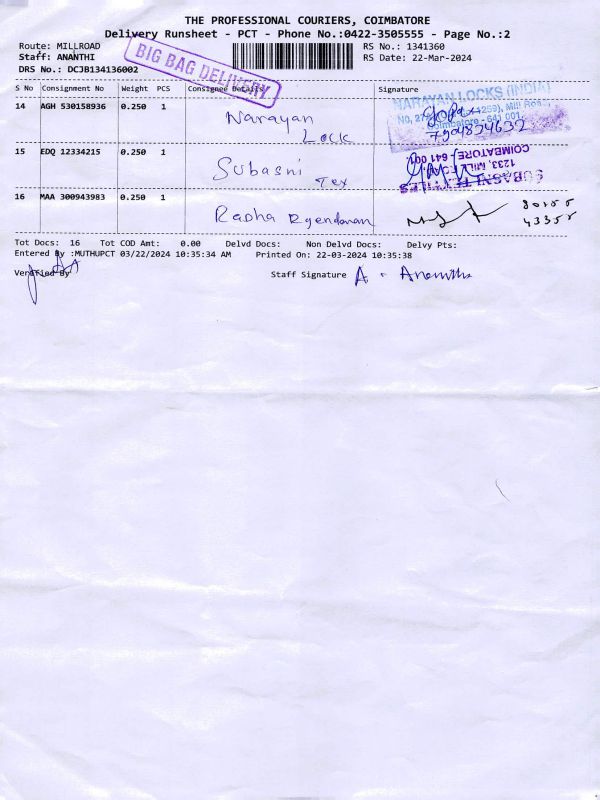 THE PROFESSIONAL COURIERS, COIMBATORE
Delivery Runsheet - PCT - Phone No.:0422-3505555 - Page No.:2
Route: MILLROAD
RS No.: 1341360
Staff: ANANTHI
RS Date: 22-Mar-2024
DRS No.: DCJB134136002
BIG BAG DELIVERY
S No Consignment No Weight PCS Consignee Details Signature
14 AGH 530158936 0.250 1 Narayan Lock
NARAYAN LOCKS (INDIA)
Mill Road
Coimbatore - 641 001.
7904834632
15 EDQ 12334215 0.250 1 Subasni Tex
SUBASNI TEXTILES
1233, MILL ROAD
COIMBATORE - 641 001
16 MAA 300943983 0.250 1 Radha
43355
Tot Docs: 16 Tot COD Amt: 0.00 Delvd Docs: Non Delvd Docs: Delvy Pts:
Entered By :MUTHUPCT 03/22/2024 10:35:34 AM Printed On: 22-03-2024 10:35:38
Verified By Staff Signature A. Ananthi